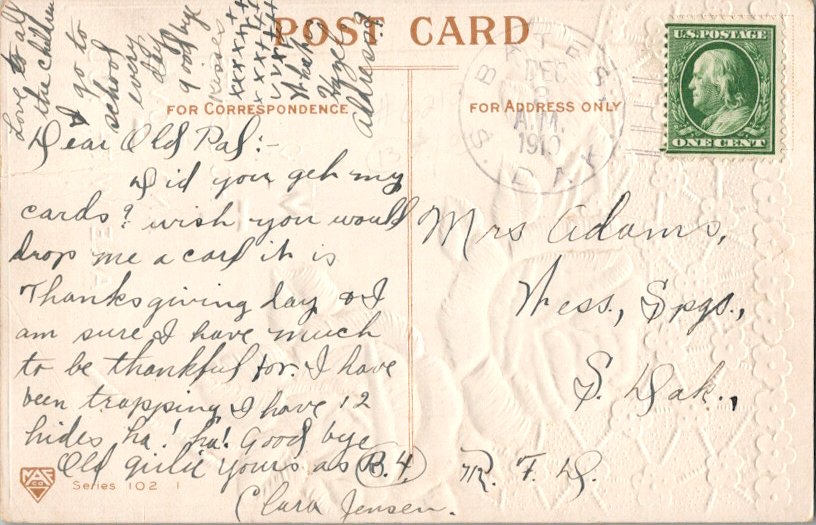 POST CARD
Love to all
the children
I go to
school
every
day
goodbye
kisses
xxxxx
address?
FOR CORRESPONDENCE
FOR ADDRESS ONLY
DEC
A.M.
1910
S. DAK.
U.S. POSTAGE
ONE CENT
Dear Old Pal:-
Did you get my
cards? wish you would
drop me a card it is
Thanksgiving day & I
am sure I have much
to be thankful for. I have
been trapping I have 12
hides ha! ha! Good bye
Old girlie yours as B.4,
Clara Jensen.
Mrs Adams,
Wess, Spgs.,
S. Dak.,
R. F. D.
Series 102 1